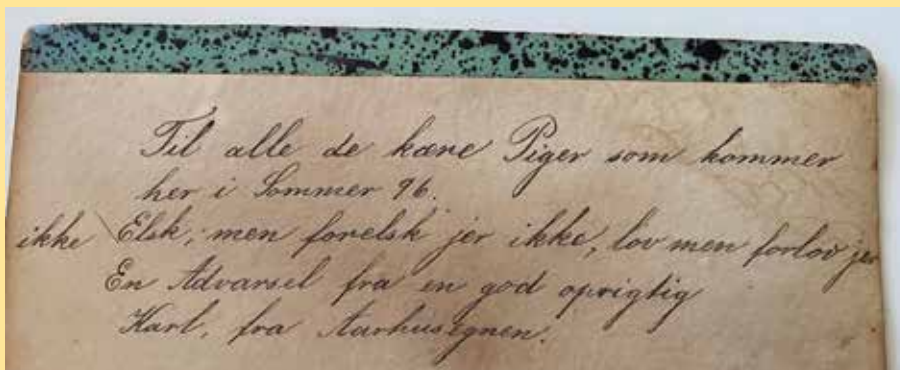 Til alle de kære Piger som kommer
her i Sommer 96.
Elsk, men forelsk jer ikke, lov men forlov jer
ikke
En Advarsel fra en god oprigtig
Karl, fra Aarhusegnen.